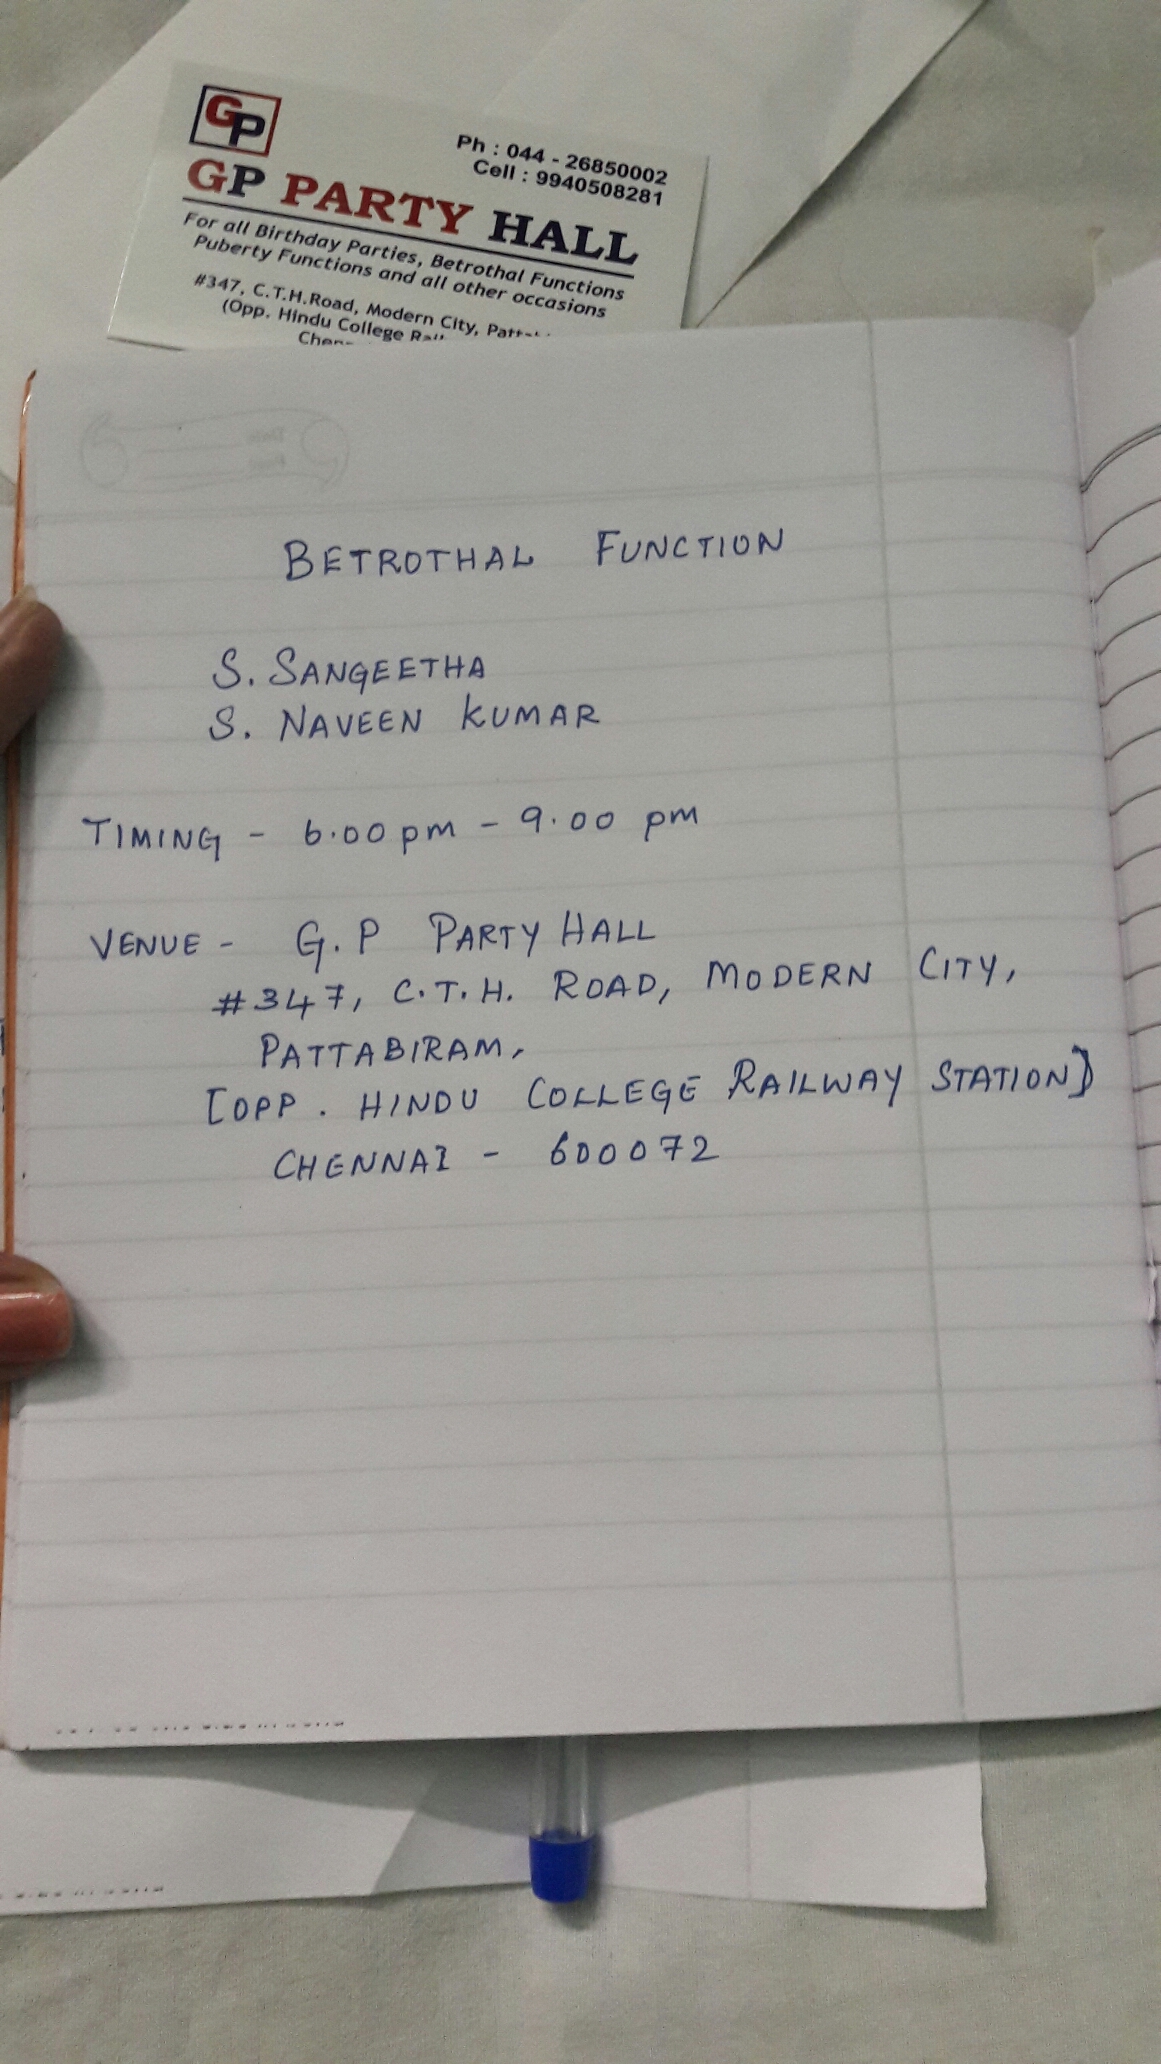 GP
Ph : 044 - 26850002
Cell : 9940508281
GP PARTY HALL
For all Birthday Parties, Betrothal Functions
Puberty Functions and all other occasions
#347, C.T.H.Road, Modern City,
(Opp. Hindu College
BETROTHAL FUNCTION
S. SANGEETHA
S. NAVEEN KUMAR
TIMING - 6.00 pm - 9.00 pm
VENUE - G.P PARTY HALL
#347, C.T.H. ROAD, MODERN CITY,
PATTABIRAM,
[OPP. HINDU COLLEGE RAILWAY STATION]
CHENNAI - 600072